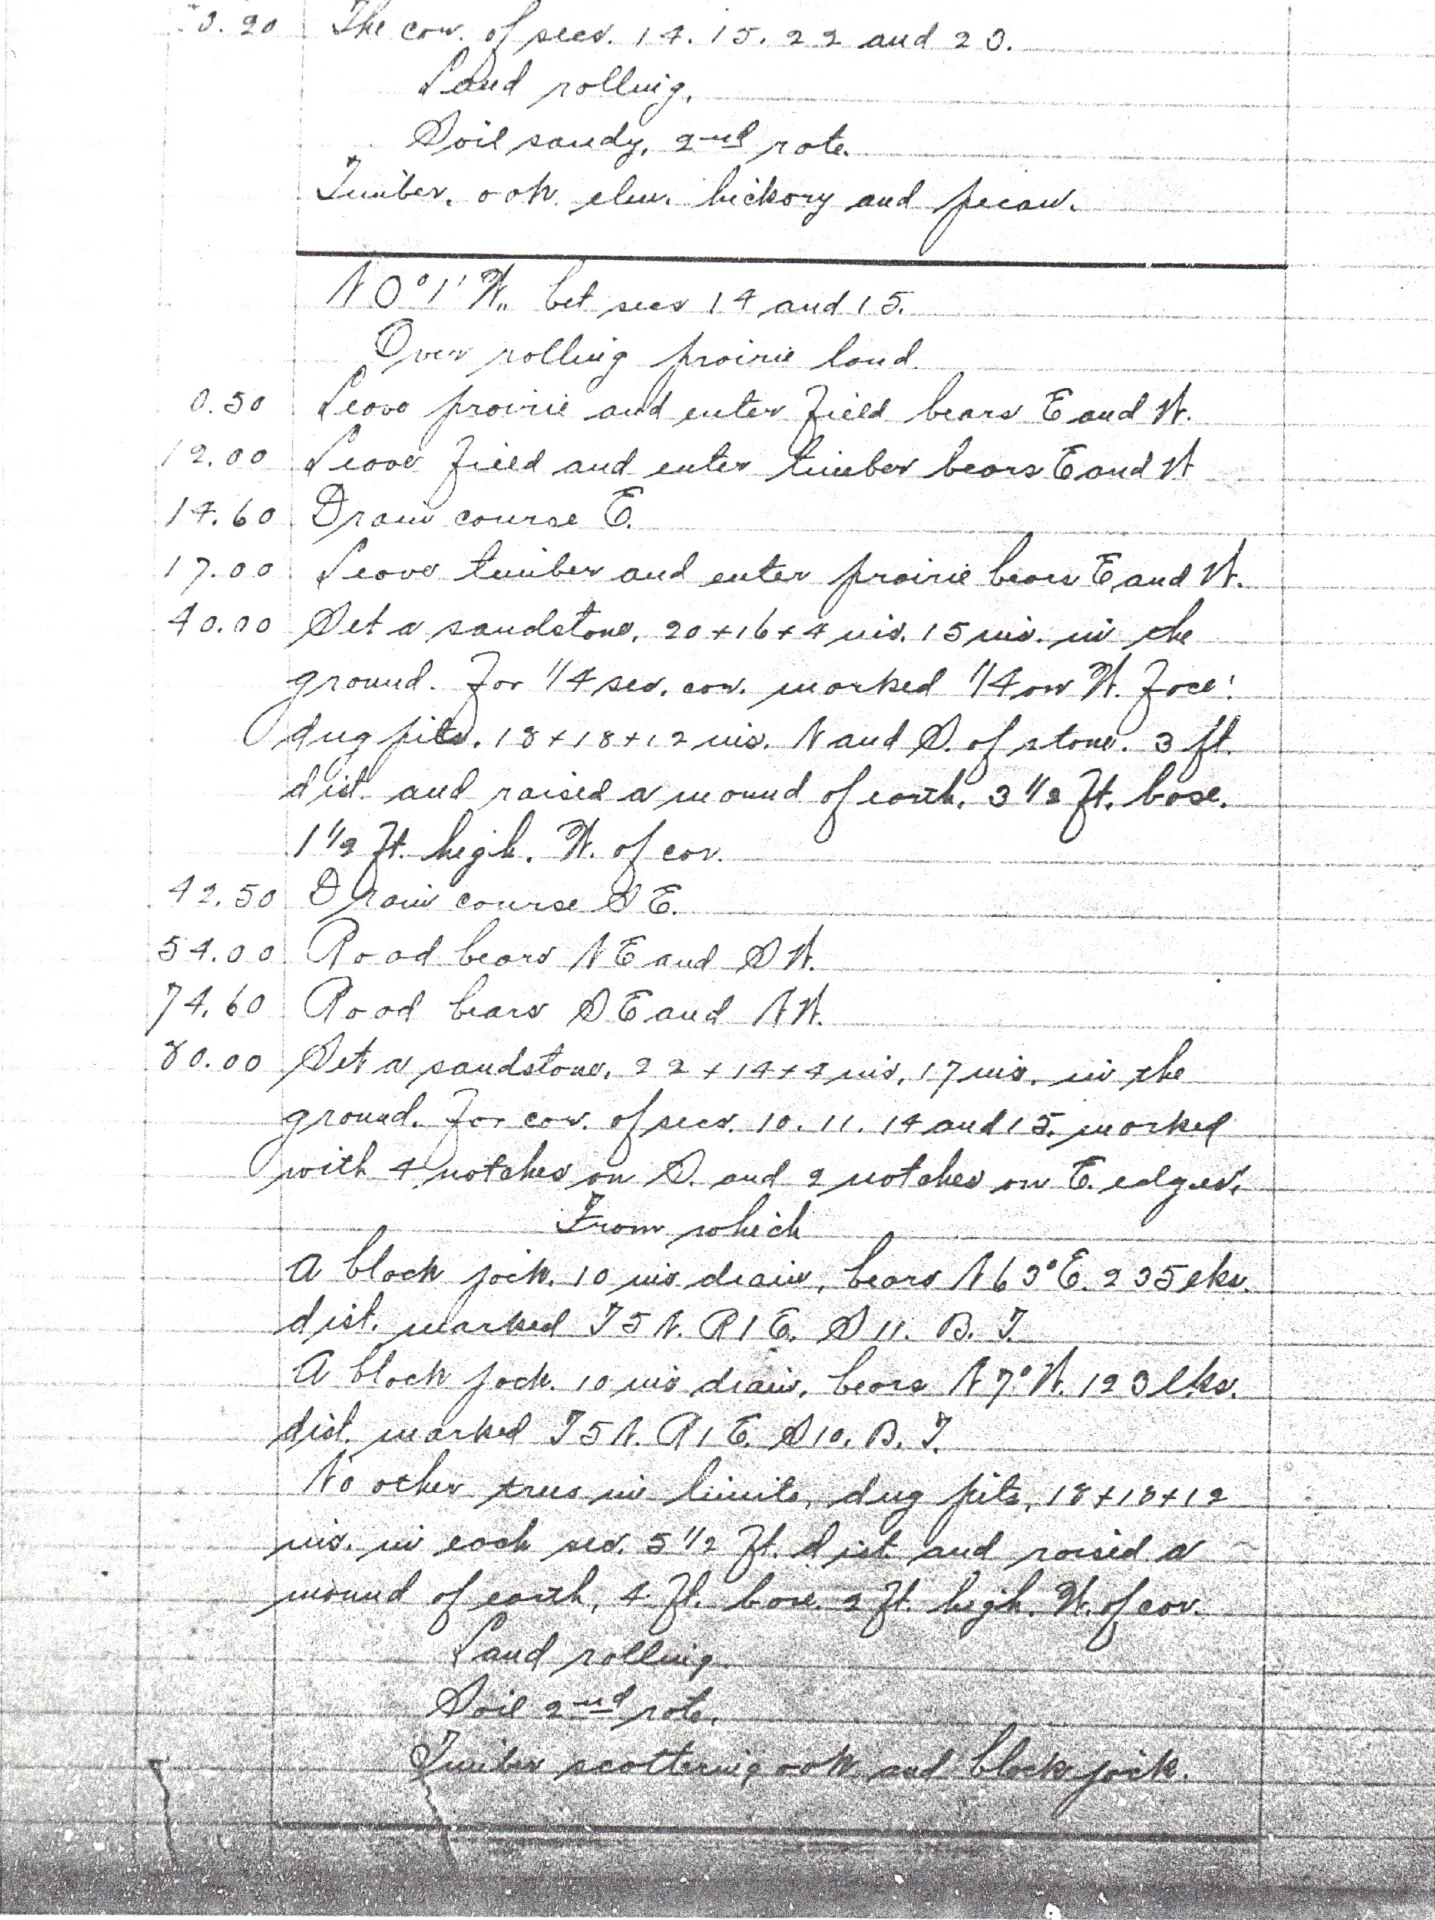 .20 The cor. of secs. 14. 15. 22 and 23.
Land rolling.
Soil sandy, 2nd rate.
Timber, oak elm. hickory and pecan.
N 0° 1' W., bet secs 14 and 15.
Over rolling prairie land.
0.50 Leave prairie and enter field bears E and W.
12.00 Leave field and enter timber bears E and W
14.60 Drain course E.
17.00 Leave timber and enter prairie bears E and W.
40.00 Set a sandstone, 20 + 16 + 4 ins. 15 ins. in the
ground. for 1/4 sec. cor. marked 1/4 on W. face;
dug pits, 18 + 18 + 12 ins. N and S. of stone. 3 ft.
dist. and raised a mound of earth, 3 1/2 ft. base.
1 1/2 ft. high. W. of cor.
42.50 Drain course S E.
54.00 Road bears N E and S W.
74.60 Road bears S E and N W.
80.00 Set a sandstone, 22 + 14 + 4 ins, 17 ins. in the
ground. for cor. of secs. 10. 11. 14 and 15. marked
with 4 notches on S. and 2 notches on E. edges,
From which
A black jack. 10 ins diam, bears N 63° E. 235 lks.
dist. marked T 5 N. R 1 E. S 11. B. T.
A black jack. 10 ins diam, bears N 7° W. 123 lks.
dist. marked T 5 N. R 1 E. S 10. B. T.
No other trees in limits, dug pits, 18 + 18 + 12
ins. in each sec. 5 1/2 ft. dist. and raised a
mound of earth, 4 ft. base. 2 ft. high. W. of cor.
Land rolling.
Soil 2nd rate.
Timber scattering oak and black jack.